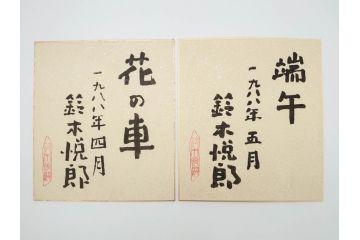 端午
一九八八年五月
鈴木悦郎
花の車
一九八八年四月
鈴木悦郎